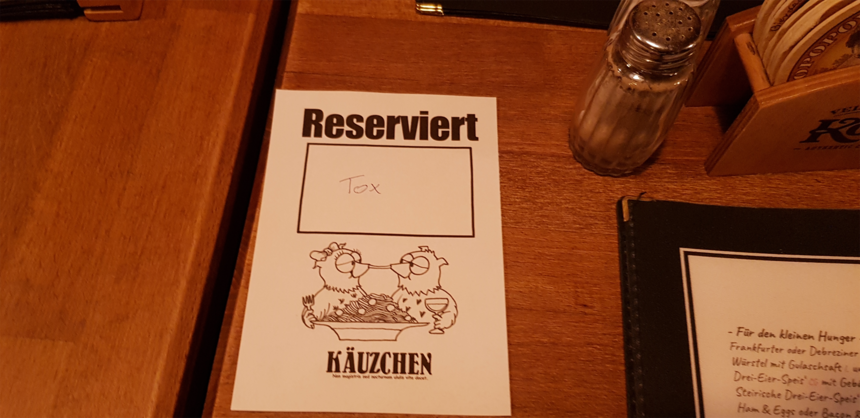 Reserviert
Tox
KÄUZCHEN
- Für den kleinen Hunger
Frankfurter oder Debreziner
Würstel mit Gulaschsaft
Drei-Eier-Speis' mit Geb
Steirische Drei-Eier-Speis
Ham & Eggs oder Bacon